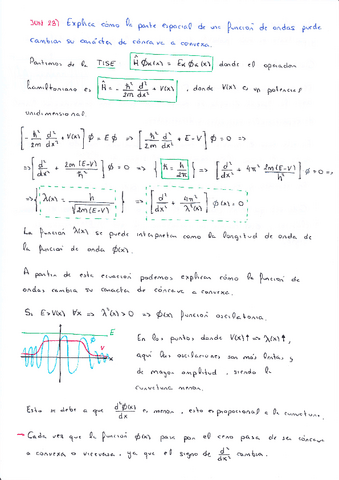 3(n) 23) Explica cómo la parte espacial de una función de ondas puede
cambiar su carácter de cóncava a convexa.
Partimos de la TISE Ĥ ϕα(x) = Eα ϕα(x) donde el operador
hamiltoniano es Ĥ = - ħ²/2m d²/dx² + V(x) , donde V(x) es un potencial
unidimensional
[- ħ²/2m d²/dx² + V(x)] ϕ = E ϕ => [ħ²/2m d²/dx² + E-V] ϕ = 0 =>
=> [d²/dx² + 2m(E-V)/ħ²] ϕ = 0 => {ħ = h/2π} => [d²/dx² + 4π² 2m(E-V)/h²] ϕ = 0 =>
=> {λ(x) = h/√2m(E-V)} => [d²/dx² + 4π²/λ²(x)] ϕ(x) = 0
La función λ(x) se puede interpretar como la longitud de onda de
la función de onda ϕ(x).
A partir de esta ecuación podemos explicar cómo la función de
ondas cambia su carácter de cóncava a convexa.
Si E>V(x) ∀x => λ²(x)>0 => ϕ(x) función oscilatoria.
E
V
x
En los puntos donde V(x)↑ => λ(x)↑,
aquí las oscilaciones son más lentas y
de mayor amplitud, siendo la
curvatura menor.
Esto se debe a que d²ϕ(x)/dx es menor, esto es proporcional a la curvatura.
- Cada vez que la función ϕ(x) pasa por el cero pasa de ser cóncava
a convexa o viceversa, ya que el signo de d²/dx² cambia.